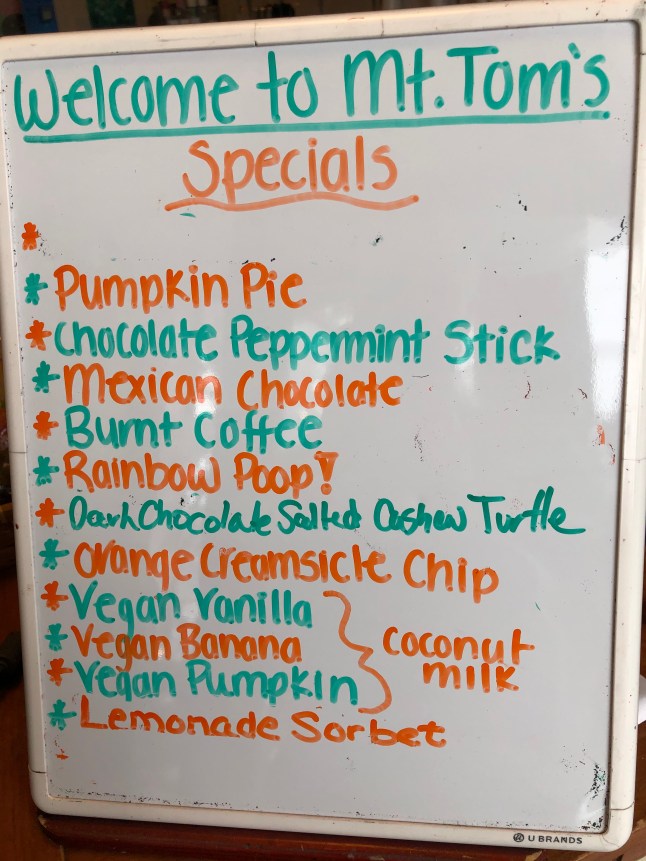 Welcome to Mt. Tom's
Specials
Pumpkin Pie
Chocolate Peppermint Stick
Mexican Chocolate
Burnt Coffee
Rainbow Poop!
Dark Chocolate Salted Cashew Turtle
Orange Creamsicle Chip
Vegan Vanilla
Vegan Banana
Vegan Pumpkin
Coconut
milk
Lemonade Sorbet
U BRANDS